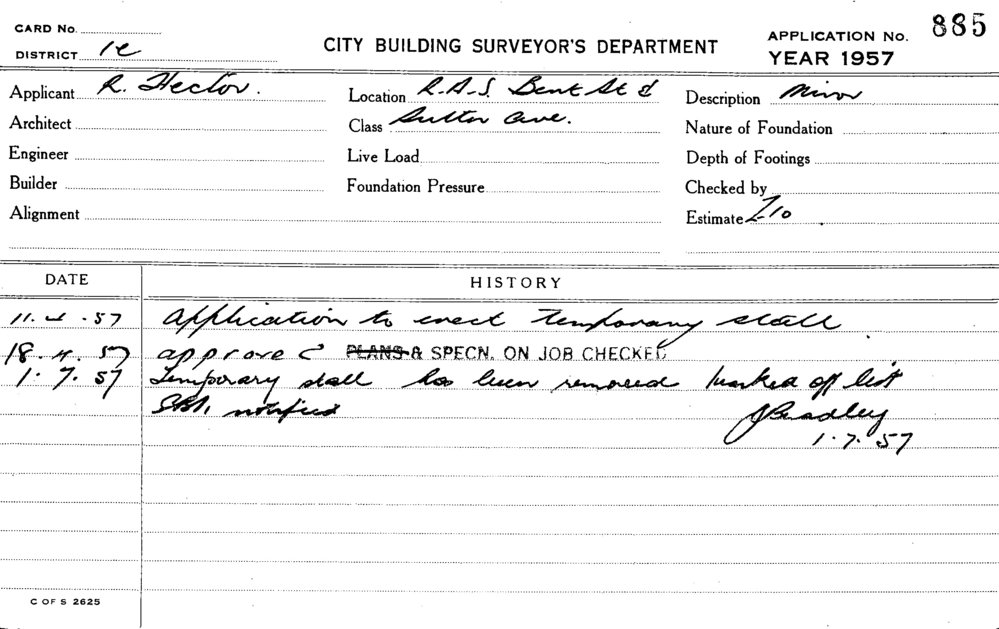 CARD No.
DISTRICT 1e
CITY BUILDING SURVEYOR'S DEPARTMENT
APPLICATION No. 885
YEAR 1957
Applicant R. Hector.
Architect
Engineer
Builder
Alignment
Location R.A.S. Bent St &
Class Sutton Ave.
Live Load
Foundation Pressure
Description Minor
Nature of Foundation
Depth of Footings
Checked by
Estimate £10
DATE HISTORY
11.4.57 Application to erect temporary stall
18.4.57 approved PLANS & SPECN. ON JOB CHECKED
1.7.57 Temporary stall has been removed marked off list
notified JBradley
1.7.57
C OF S 2625